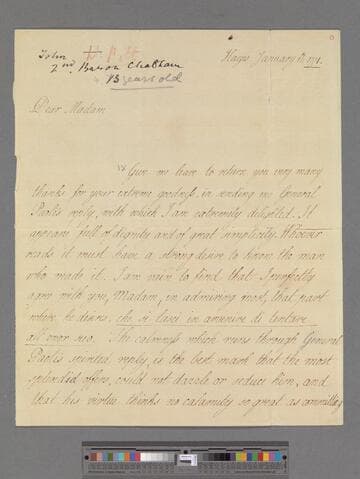 John
2nd Baron Chatham
13 years old
Hayes January
1771.
Dear Madam
Give me leave to return you very many
thanks for your extreme goodness in sending me General
Paoli's reply, with which I am extremely delighted. It
appears full of dignity and of great simplicity. Whoever
reads it must have a strong desire to know the man
who made it. I am vain to find that I perfectly
agree with you, Madam, in admiring most, that part
where he desires, che si lasci in amenire di tentare
The calmness which runs through General
Paoli's spirited reply, is the best mark that the most
splendid offers, could not dazzle or seduce him, and
that his virtue thinks no calamity so great as